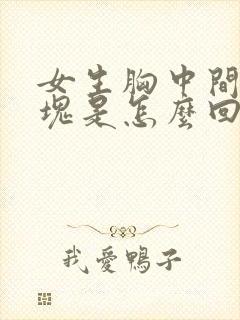 女生胸中間
塊是怎麼回
我愛鴨子